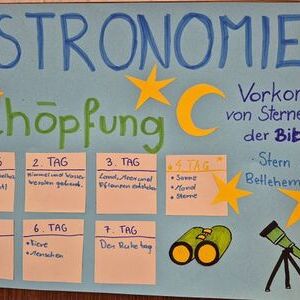 STRONOMIE
chöpfung
Vorkom
von Sterne
der Bib
• Stern
Betlehem
2. TAG
Himmel und Wasser
werden getrennt.
3. TAG
Land, Meer und
Pflanzen entstehen
4. TAG
• Sonne
• Mond
• Sterne
6. TAG
• Tiere
• Menschen
7. TAG
Der Ruhetag